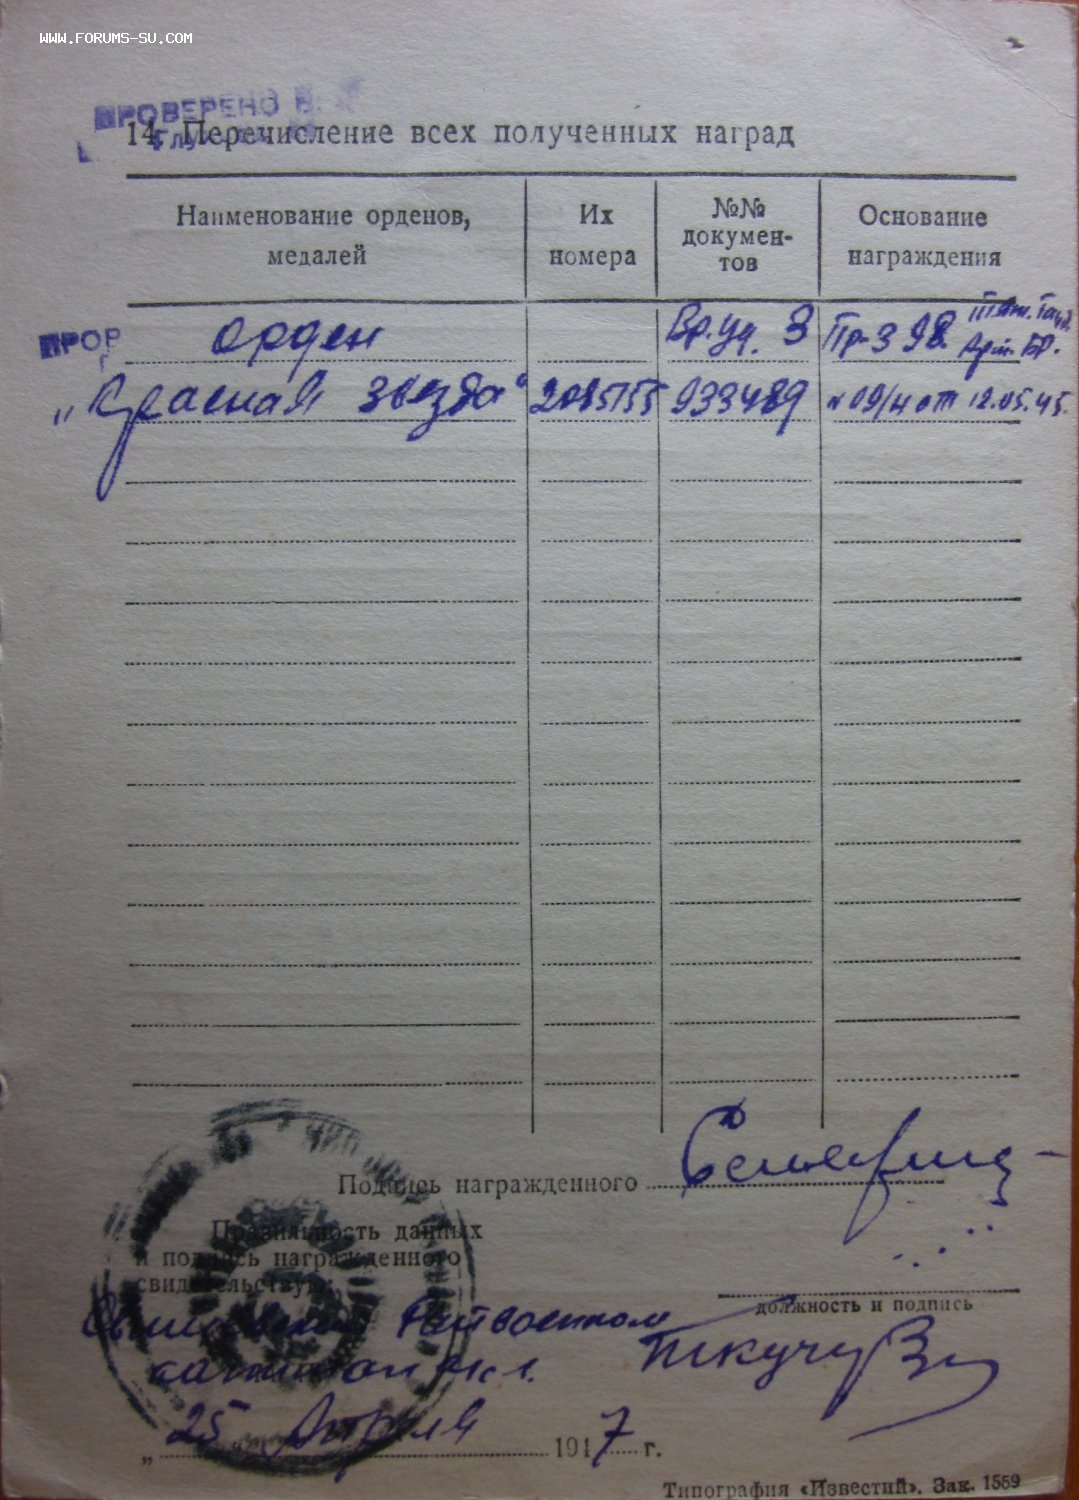 WWW.FORUMS-SU.COM
ПРОВЕРЕНО
14. Перечисление всех полученных наград
Наименование орденов, медалей
Их номера
№№ докумен-тов
Основание награждения
ПРОВ
Орден Вр. уд. З Пр-З 98 Арт. БР.
„Красная звезда“ 2085155 933489 №09/н от 12.05.45.
Подпись награжденного
Правильность данных
и подпись награжденного
свидетельствую:
должность и подпись
Райвоенком
капитан
„25 Апреля 1947 г.
Типография «Известий». Зак. 1559